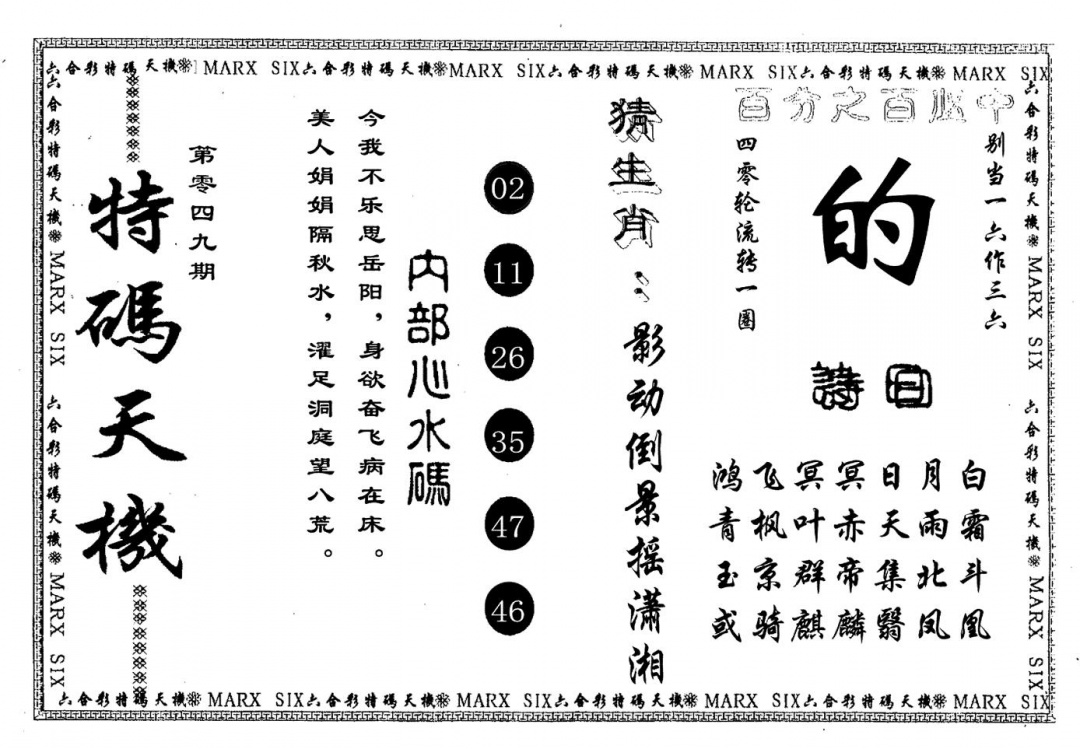 六合彩特碼天機 MARX SIX六合彩特碼天機MARX SIX六合彩特碼天機 MARX SIX六合彩特碼天機 MARX SIX
六合彩特碼天機 MARX SIX 六合彩特碼天機 MARX SIX
特碼天機
第零四九期
今我不乐思岳阳，身欲奋飞病在床。
美人娟娟隔秋水，濯足洞庭望八荒。
内部心水碼
02
11
26
35
47
46
猜生肖：影动倒景摇潇湘
百分之百必中
别当一六作三六
四零轮流转一圈
的
詩曰
鸿飞冥冥日月白
青枫叶赤天雨霜
玉京群帝集北斗
或骑麒麟翳凤凰
六合彩特碼天機 MARX SIX 六合彩特碼天機 MARX SIX
六合彩特碼天機 MARX SIX六合彩特碼天機 MARX SIX六合彩特碼天機 MARX SIX六合彩特碼天機 MARX SIX